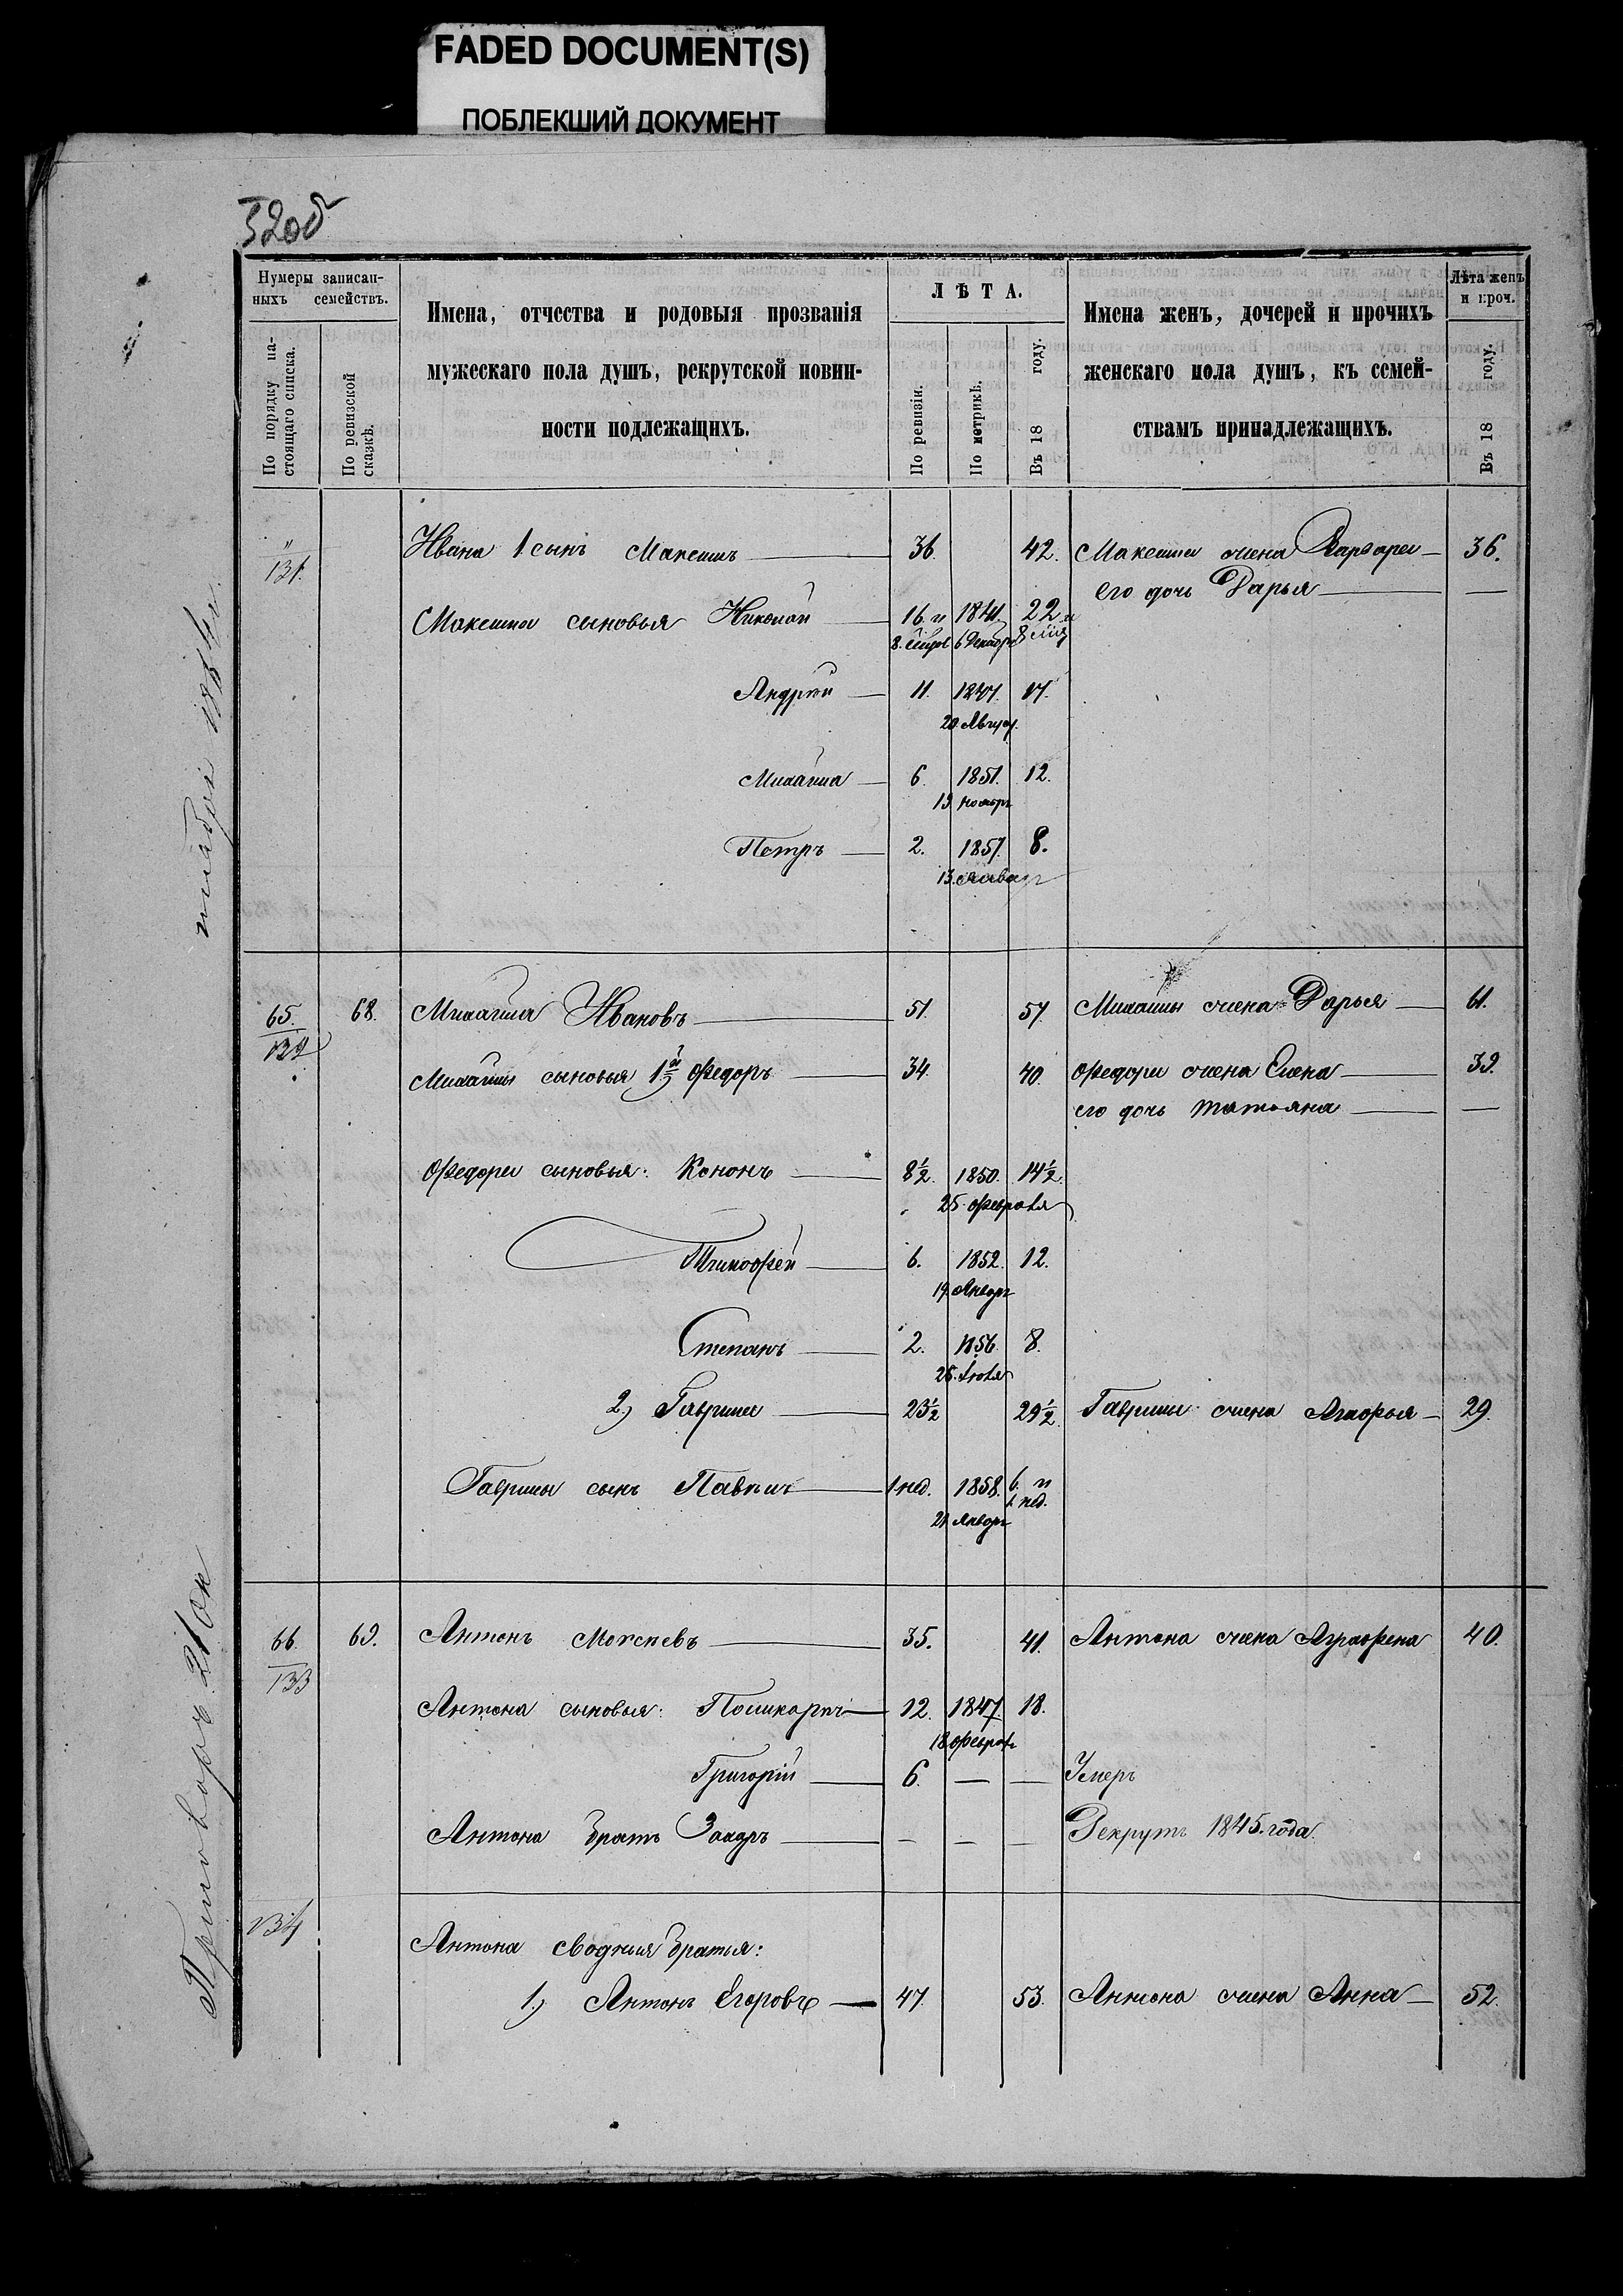 FADED DOCUMENT(S)
ПОБЛЕКШИЙ ДОКУМЕНТ
32об
Нумеры записан-
ныхъ семействъ.
По порядку на-
стоящаго списка.
По ревизской
сказкѣ.
Имена, отчества и родовыя прозванія
мужескаго пола душъ, рекрутской повин-
ности подлежащихъ.
ЛѢТА.
По ревизіи.
По метрикѣ.
Въ 18 году.
Имена женъ, дочерей и прочихъ
женскаго пола душъ, къ семей-
ствамъ принадлежащихъ.
Лѣта женъ
и проч.
Въ 18 году.
" 131. Ивана 1 сынъ Максимъ 36. 42. Максима жена Варвара 36.
его дочь Дарья —
Максима сыновья Николай 16. и 1841. 22 и
6 Декабр
Андрей 11. 1847. 17.
20 Август.
Михайла 6. 1851. 12.
19 ноябр
Петръ 2. 1857. 8.
13. Январ
65. 68. Михайла Ивановъ 51. 57. Михайлы жена Дарья 61.
132
Михайлы сыновья 1й Федоръ 34. 40. Федора жена Елена 39.
его дочь Татьяна —
Федора сыновья: Кононъ 8½. 1850. 14½.
25. февраля
Тимофей 6. 1852. 12.
19. Январ
Степанъ 2. 1856. 8.
26. Июля
2) Гаврила 23½ 29½. Гаврилы жена Агафья 29.
Гаврилы сынъ Павелъ 1 нед. 1858. 6. и
1 нед.
21 Январ
66. 69. Антонъ Моисеевъ 35. 41. Антона жена Аграфена 40.
133
Антона сыновья: Поликарпъ 12. 1847. 18.
18 феврал
Григорій 6. — — Умеръ
Антона братъ Захаръ — — — Рекрутъ 1845. года.
134
Антона сводные братья:
1) Антонъ Егоровъ 47. 53. Антона жена Анна 52.
Приговоръ 21 Ок
тября 1864 г.